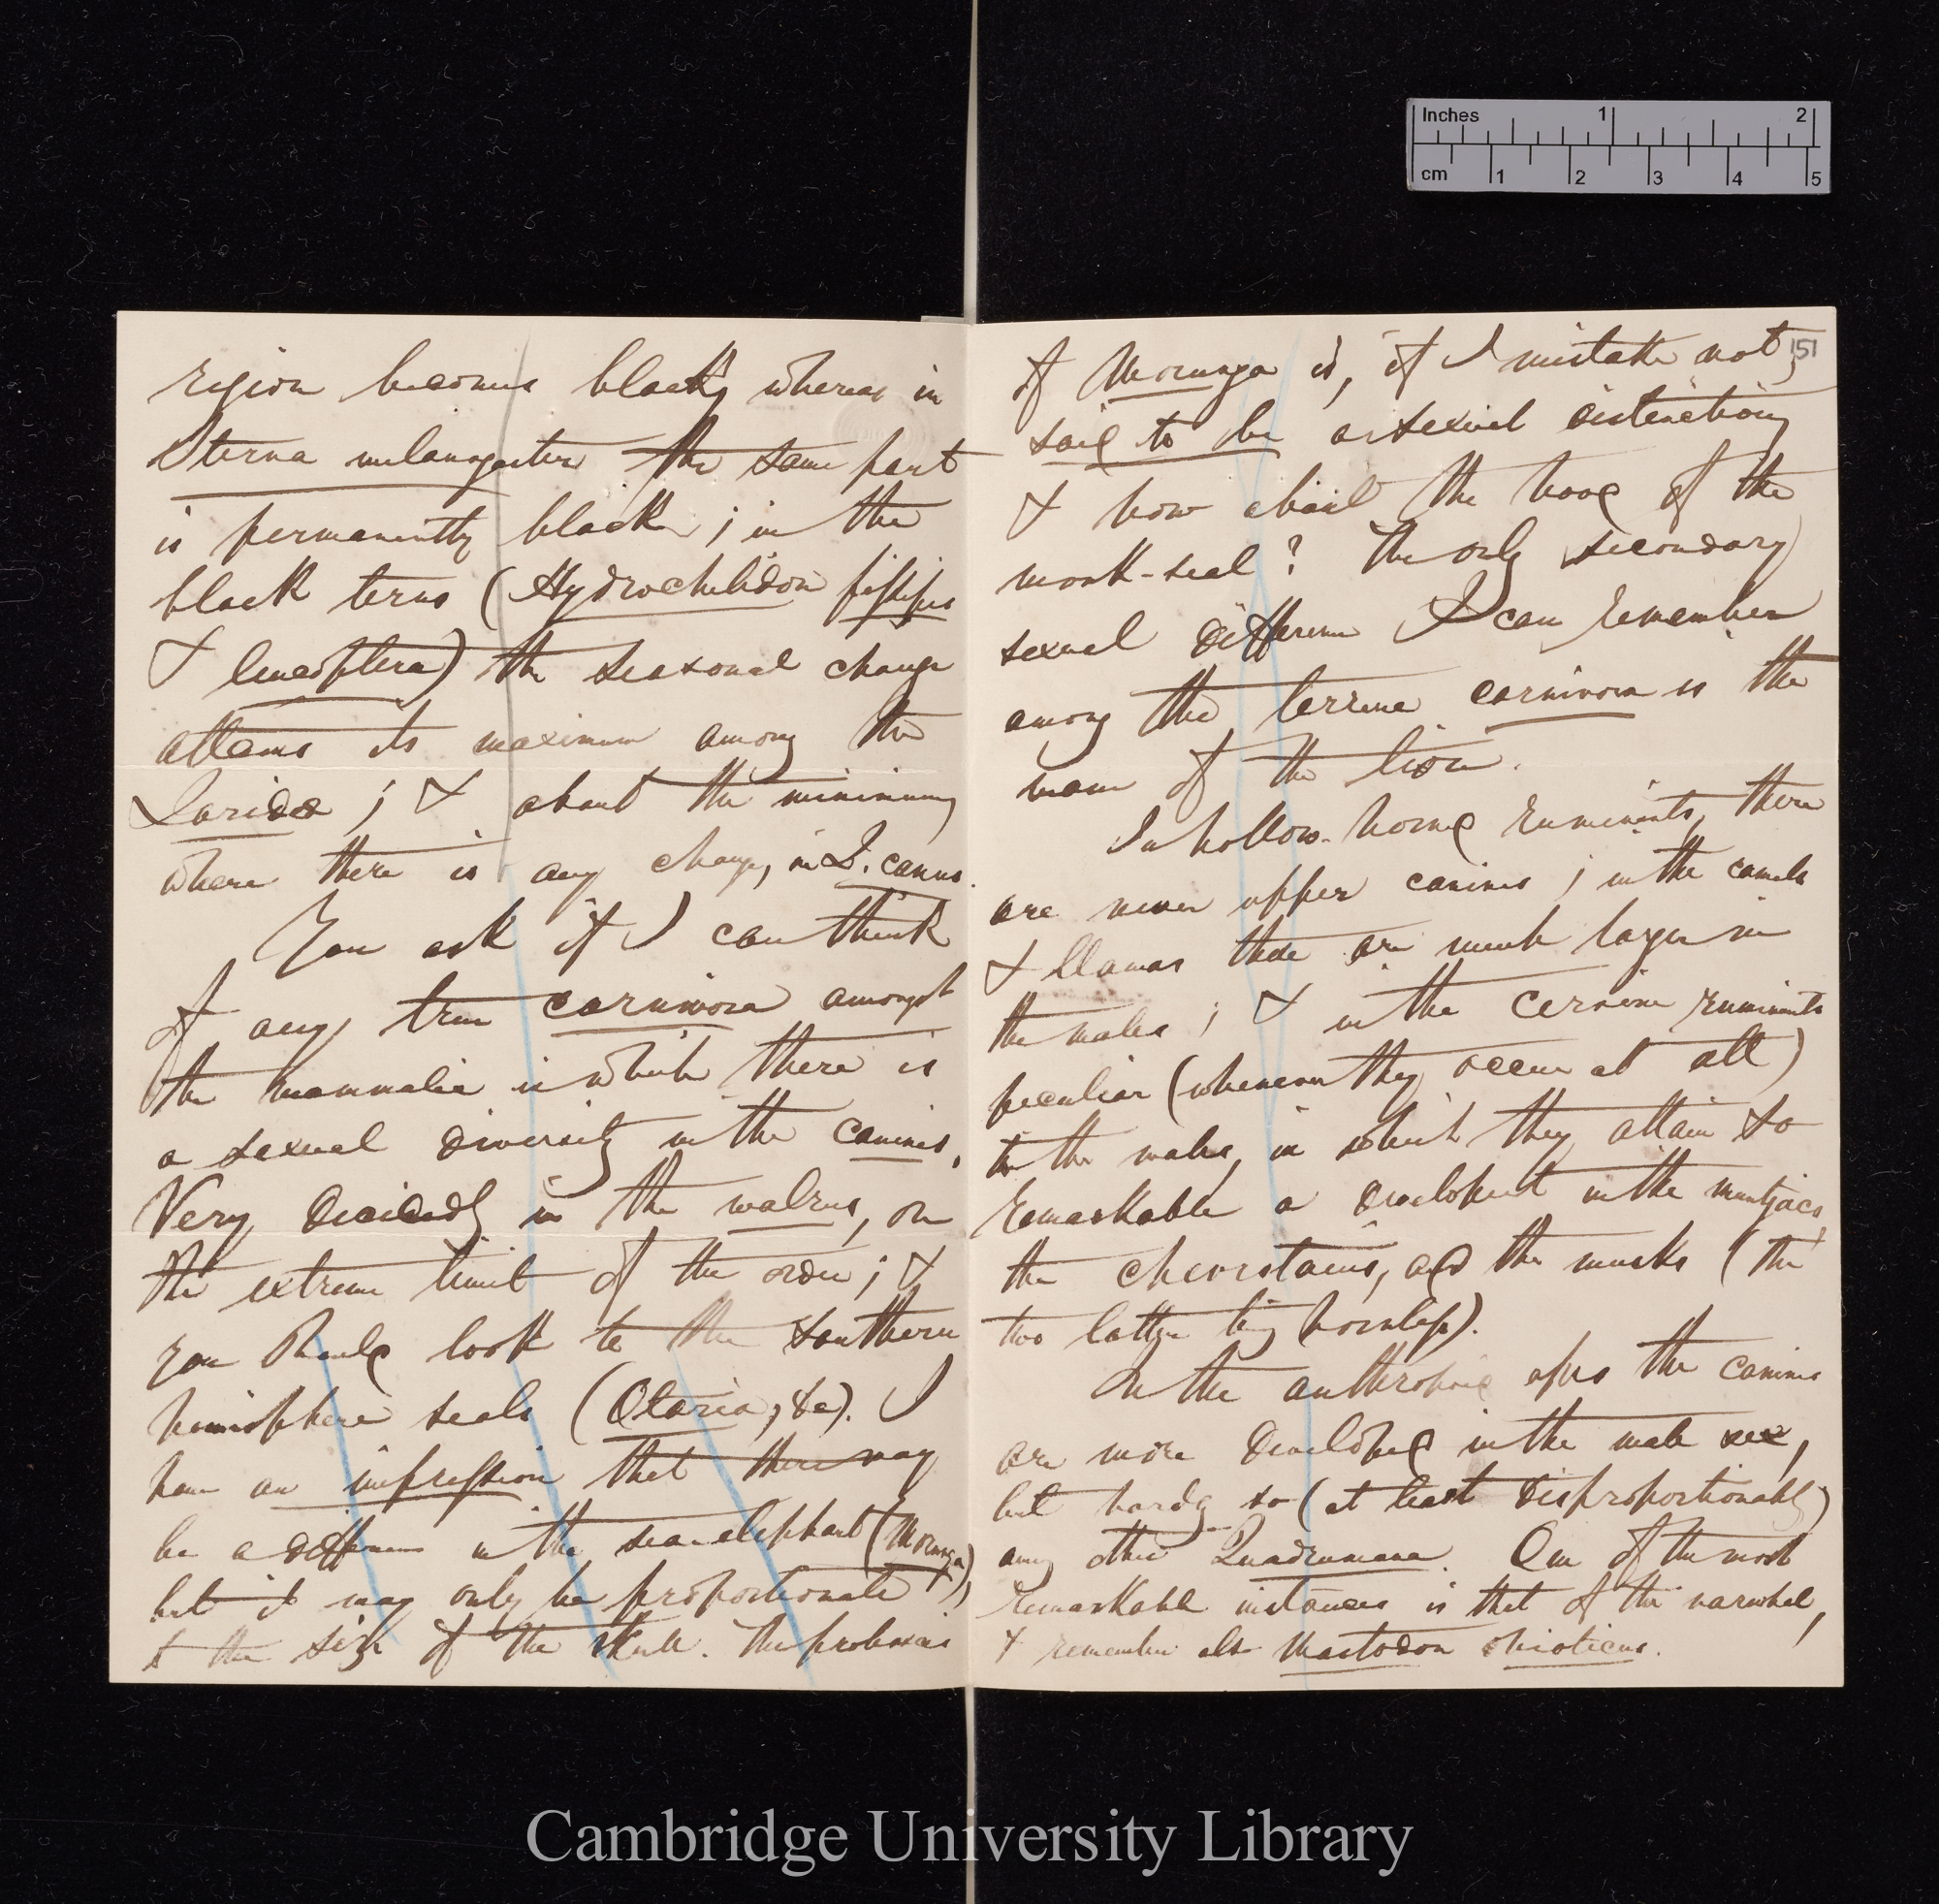 region becomes black, whereas in
Sterna melanogaster the same part
is permanently black; in the
black terns (Hydrochelidon fissipes
& leucoptera) the seasonal change
attains its maximum among the
Laridæ; & about the minimum,
where there is any change, in L. canus.
You ask if I can think
of any true carnivora amongst
the mammalia in which there is
a sexual diversity in the canines.
Very decidedly in the walrus, on
the extreme limit of the order; &
you should look to the southern
hemisphere seals (Otaria, &c). I
have an impression that there may
be a difference in the sea-elephant (Morunga),
but it may only be proportionate
to the size of the skull. The proboscis
of Morunga is, if I mistake not,
151
said to be a sexual distinction,
& how about the hood of the
monk-seal? The only secondary
sexual difference I can remember
among the terrene carnivora is the
mane of the lion.
In hollow-horned ruminants, there
are never upper canines; in the camels
& llamas these are much larger in
the males; & in the cervine ruminants
peculiar (whenever they occur at all)
to the males, in which they attain so
remarkable a development in the muntjacs,
the chevrotains, and the musks (the
two latter being hornless).
In the anthropoid apes the canines
are more developed in the male sex,
but hardly so (at least disproportionably)
any other Quadrumana. One of the most
remarkable instances is that of the narwhal,
& remember also Mastodon ohioticus.
Inches 1 2
cm 1 2 3 4 5
Cambridge University Library